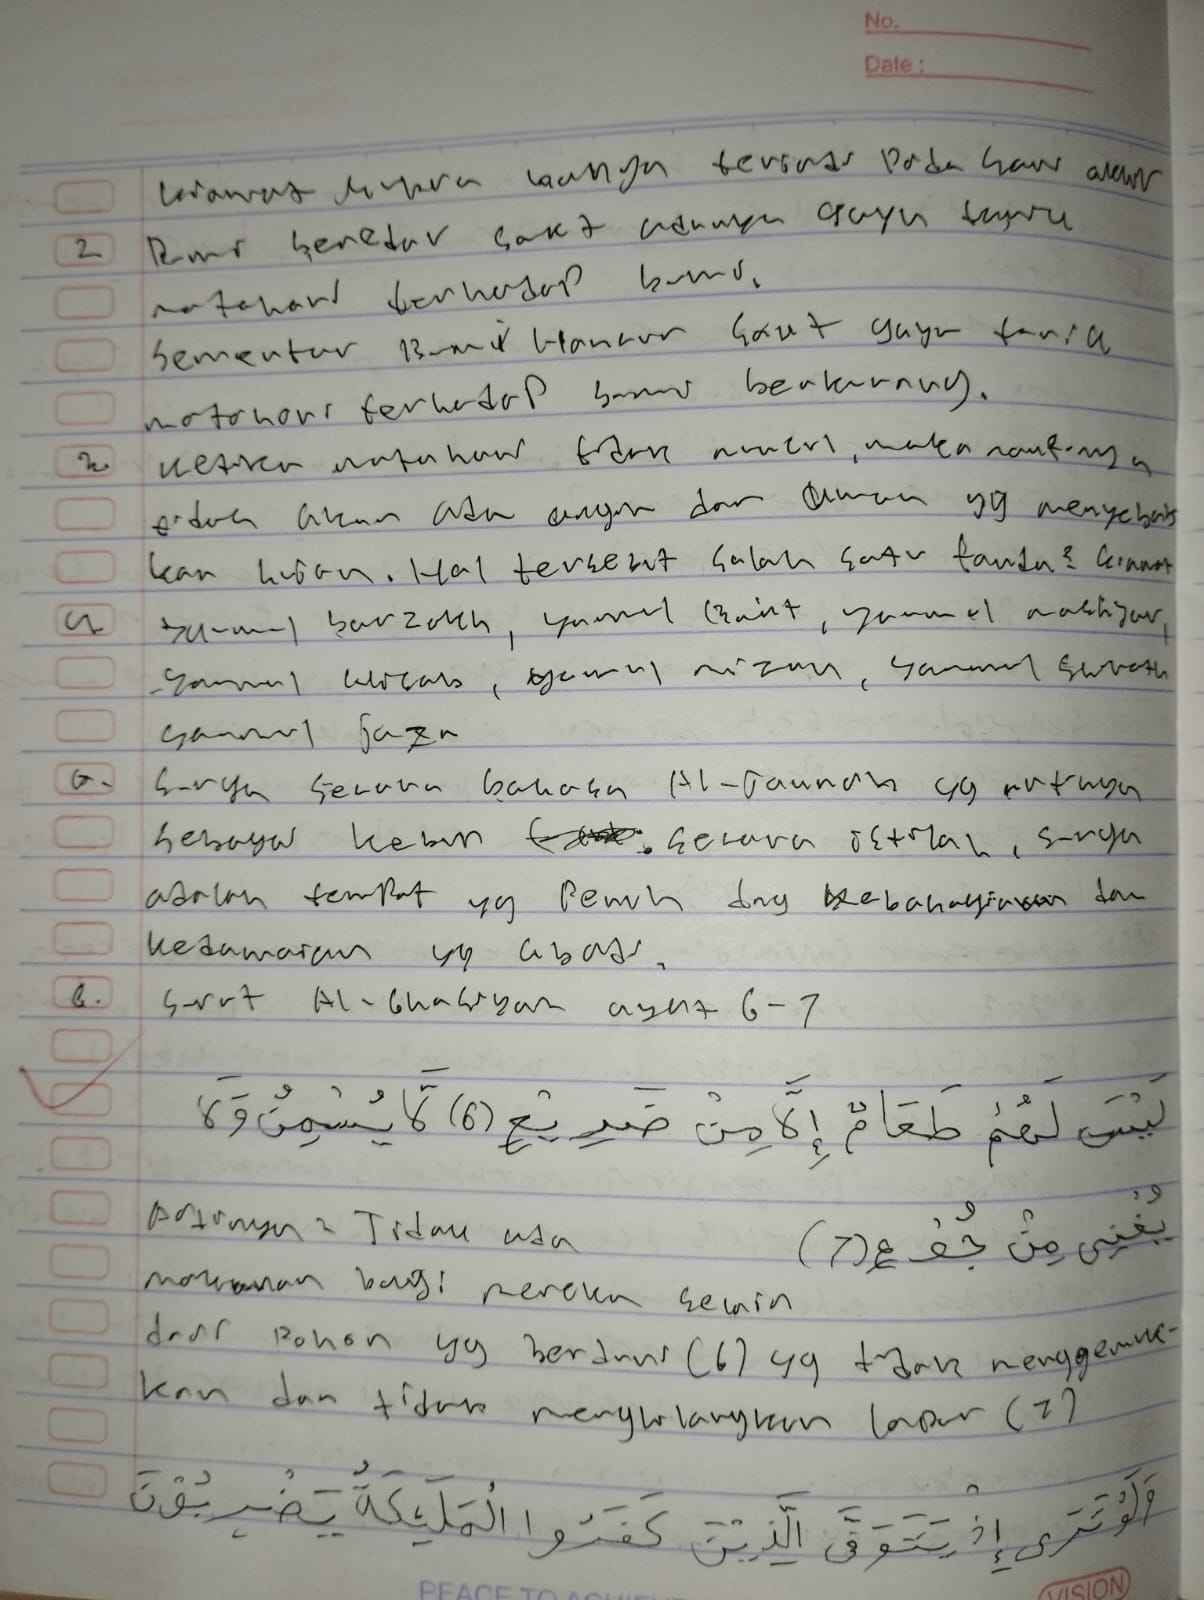 No.
Date :
kiamat kubra hanya terjadi pada hari akhir
2 Bumi beredar saat adanya gaya tarik
matahari terhadap bumi.
Sementar Bumi Hancur saat gaya tarik
matahari terhadap bumi berkurang.
3. ketika matahari tidak ada, maka nantinya
tidak akan ada angin dan awan yg menyebab
kan hujan. Hal tersebut salah satu tanda² kiamat
4. Yaumul barzakh, yaumul ba'at, yaumul mahsyar,
yaumul hisab, yaumul mizan, yaumul sirath
yaumul jaza
5. Surga secara bahasa Al-Jannah yg artinya
sebagai kebun . Secara istilah, surga
adalah tempat yg penuh dng kebahagiaan dan
kedamaian yg abadi.
6. Surat Al-Ghasiyah ayat 6-7
لَيْسَ لَهُمْ طَعَامٌ إِلَّا مِنْ ضَرِيْعٍ (6) لَّا يُسْمِنُ وَلَا
يُغْنِى مِنْ جُوْعٍ (7)
Artinya = Tidak ada
makanan bagi mereka selain
dari pohon yg berduri (6) yg tidak menggemuk-
kan dan tidak menghilangkan lapar (7)
وَلَوْ تَرَى إِذْ يَتَوَفَّى الَّذِيْنَ كَفَرُوا الْمَلَئِكَةُ يَضْرِبُوْنَ
PEACE TO
VISION